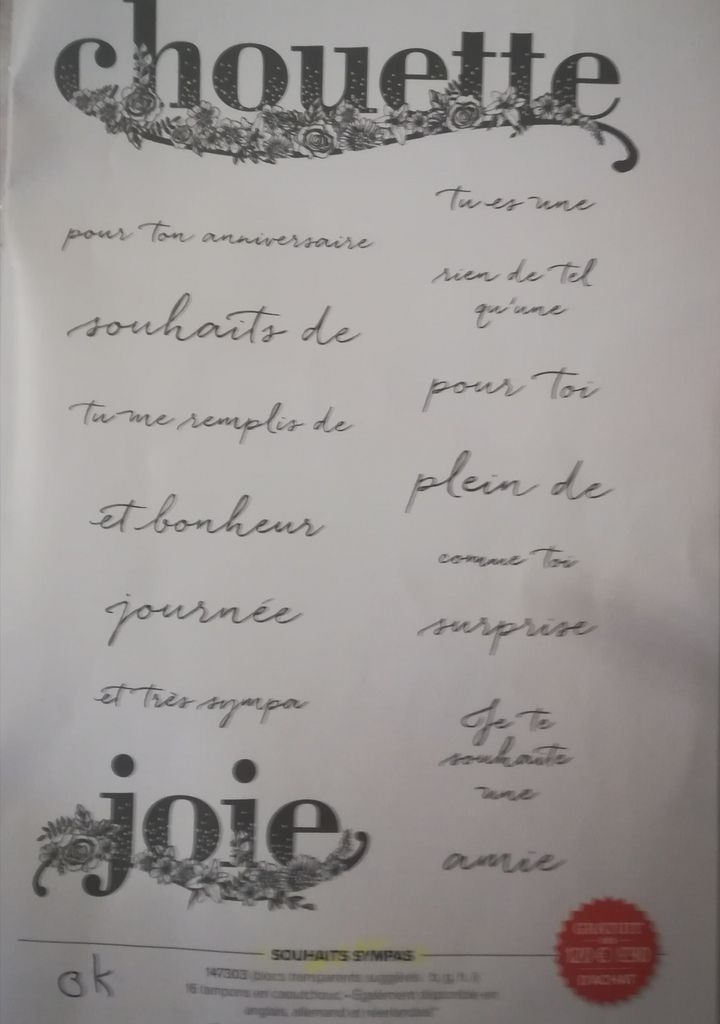 chouette
pour ton anniversaire
souhaits de
tu me remplis de
et bonheur
journée
et très sympa
joie
tu es une
rien de tel
qu'une
pour toi
plein de
comme toi
surprise
Je te
souhaite
une
amie
SOUHAITS SYMPAS
147303 blocs transparents suggérés : b, g, h, i)
16 tampons en caoutchouc • Également disponible en
anglais, allemand et néerlandais
GRATUIT
D'ACHAT
ok